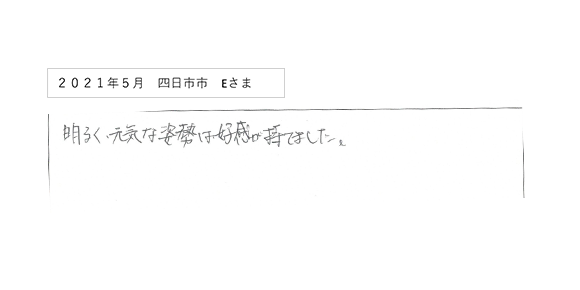 ２０２１年５月　四日市市　Eさま
明るく、元気な姿勢は好感が持てました。